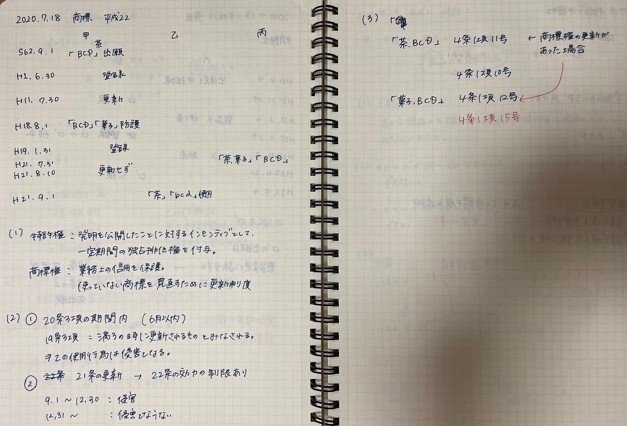 2020.7.18 商標 平成22
甲 乙 丙
茶
S62.9.1 「BCD」出願
H1.6.30 登録
H11.7.30 更新
H18.8.1 「BCD」「菓子」防護
H19.1.31 登録
H21.7.31 「茶,菓子」「BCD」
H21.8.10 更新せず
H21.9.1 「茶」「bcd」使用
(1) 特許権:発明を公開したことに対するインセンティブとして、
一定期間の独占排他権を付与。
商標権:業務上の信用を保護。
使っていない商標を見直すために更新制度
(2) ① 20条3項の期間内 (6月以内)
19条3項:満了の時に更新されるものとみなされる。
乙の使用行為は侵害となる。
② 21条の更新 → 22条の効力の制限あり
9.1 ~ 12.30 : 侵害
12.31 ~ : 侵害とならない
(3)
「茶,BCD」 4条1項11号 ← 商標権の更新が
あった場合
4条1項10号
「菓子,BCD」 4条1項12号
4条1項15号